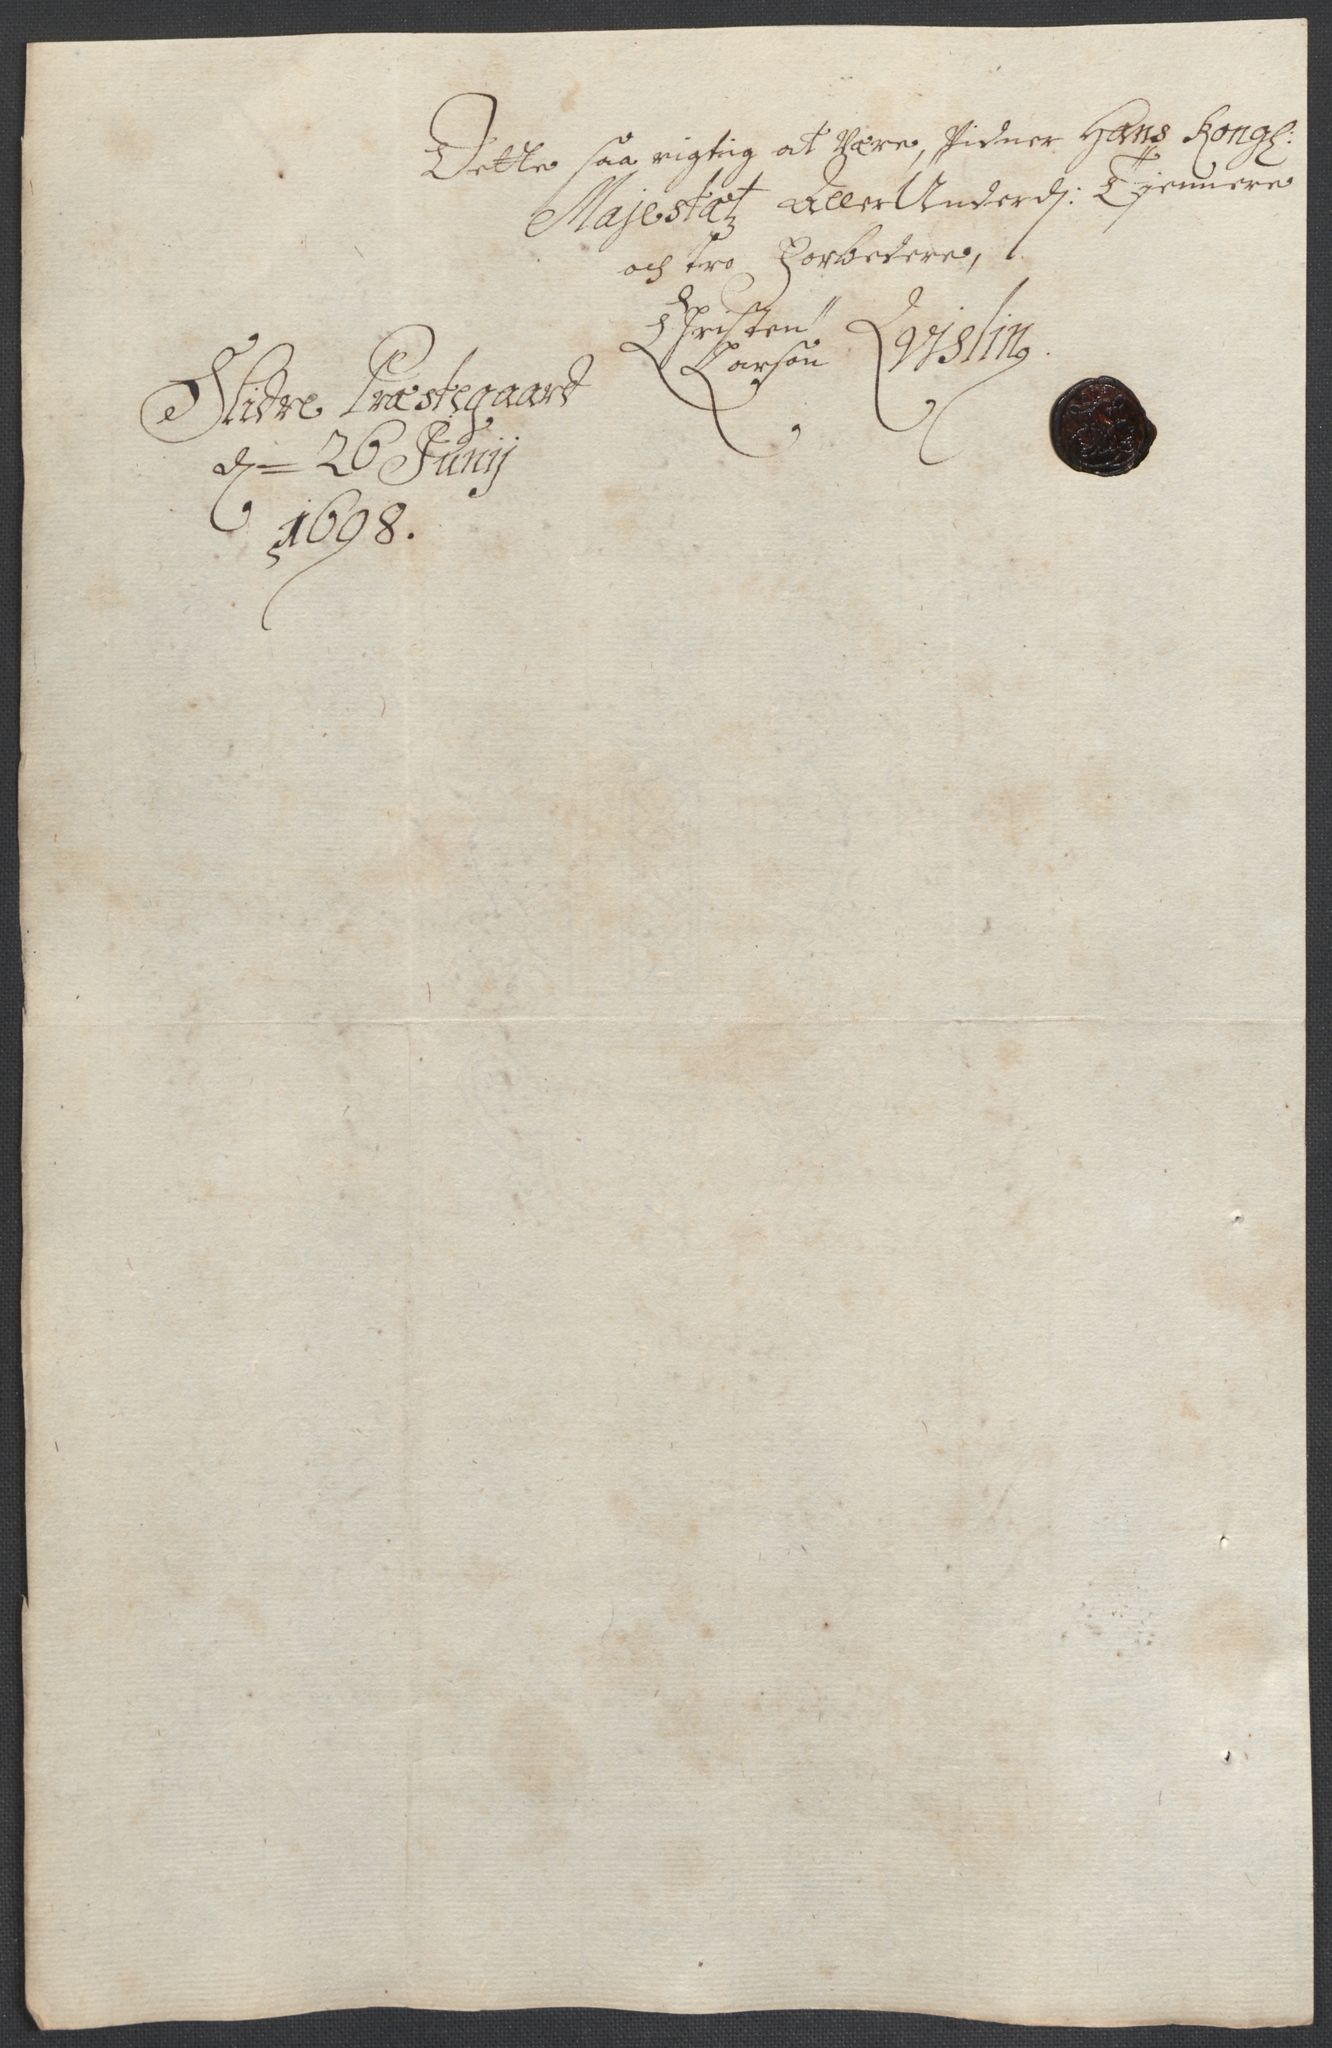 Dette saa rigtig at Være, Vidner Hans Kongl:
Majestætz AllerUnderd: Tjennere
och tro Forbedere,
Christen Larsøn Qvislin
Slidre Præstegaard
d= 26 Junij
1698.